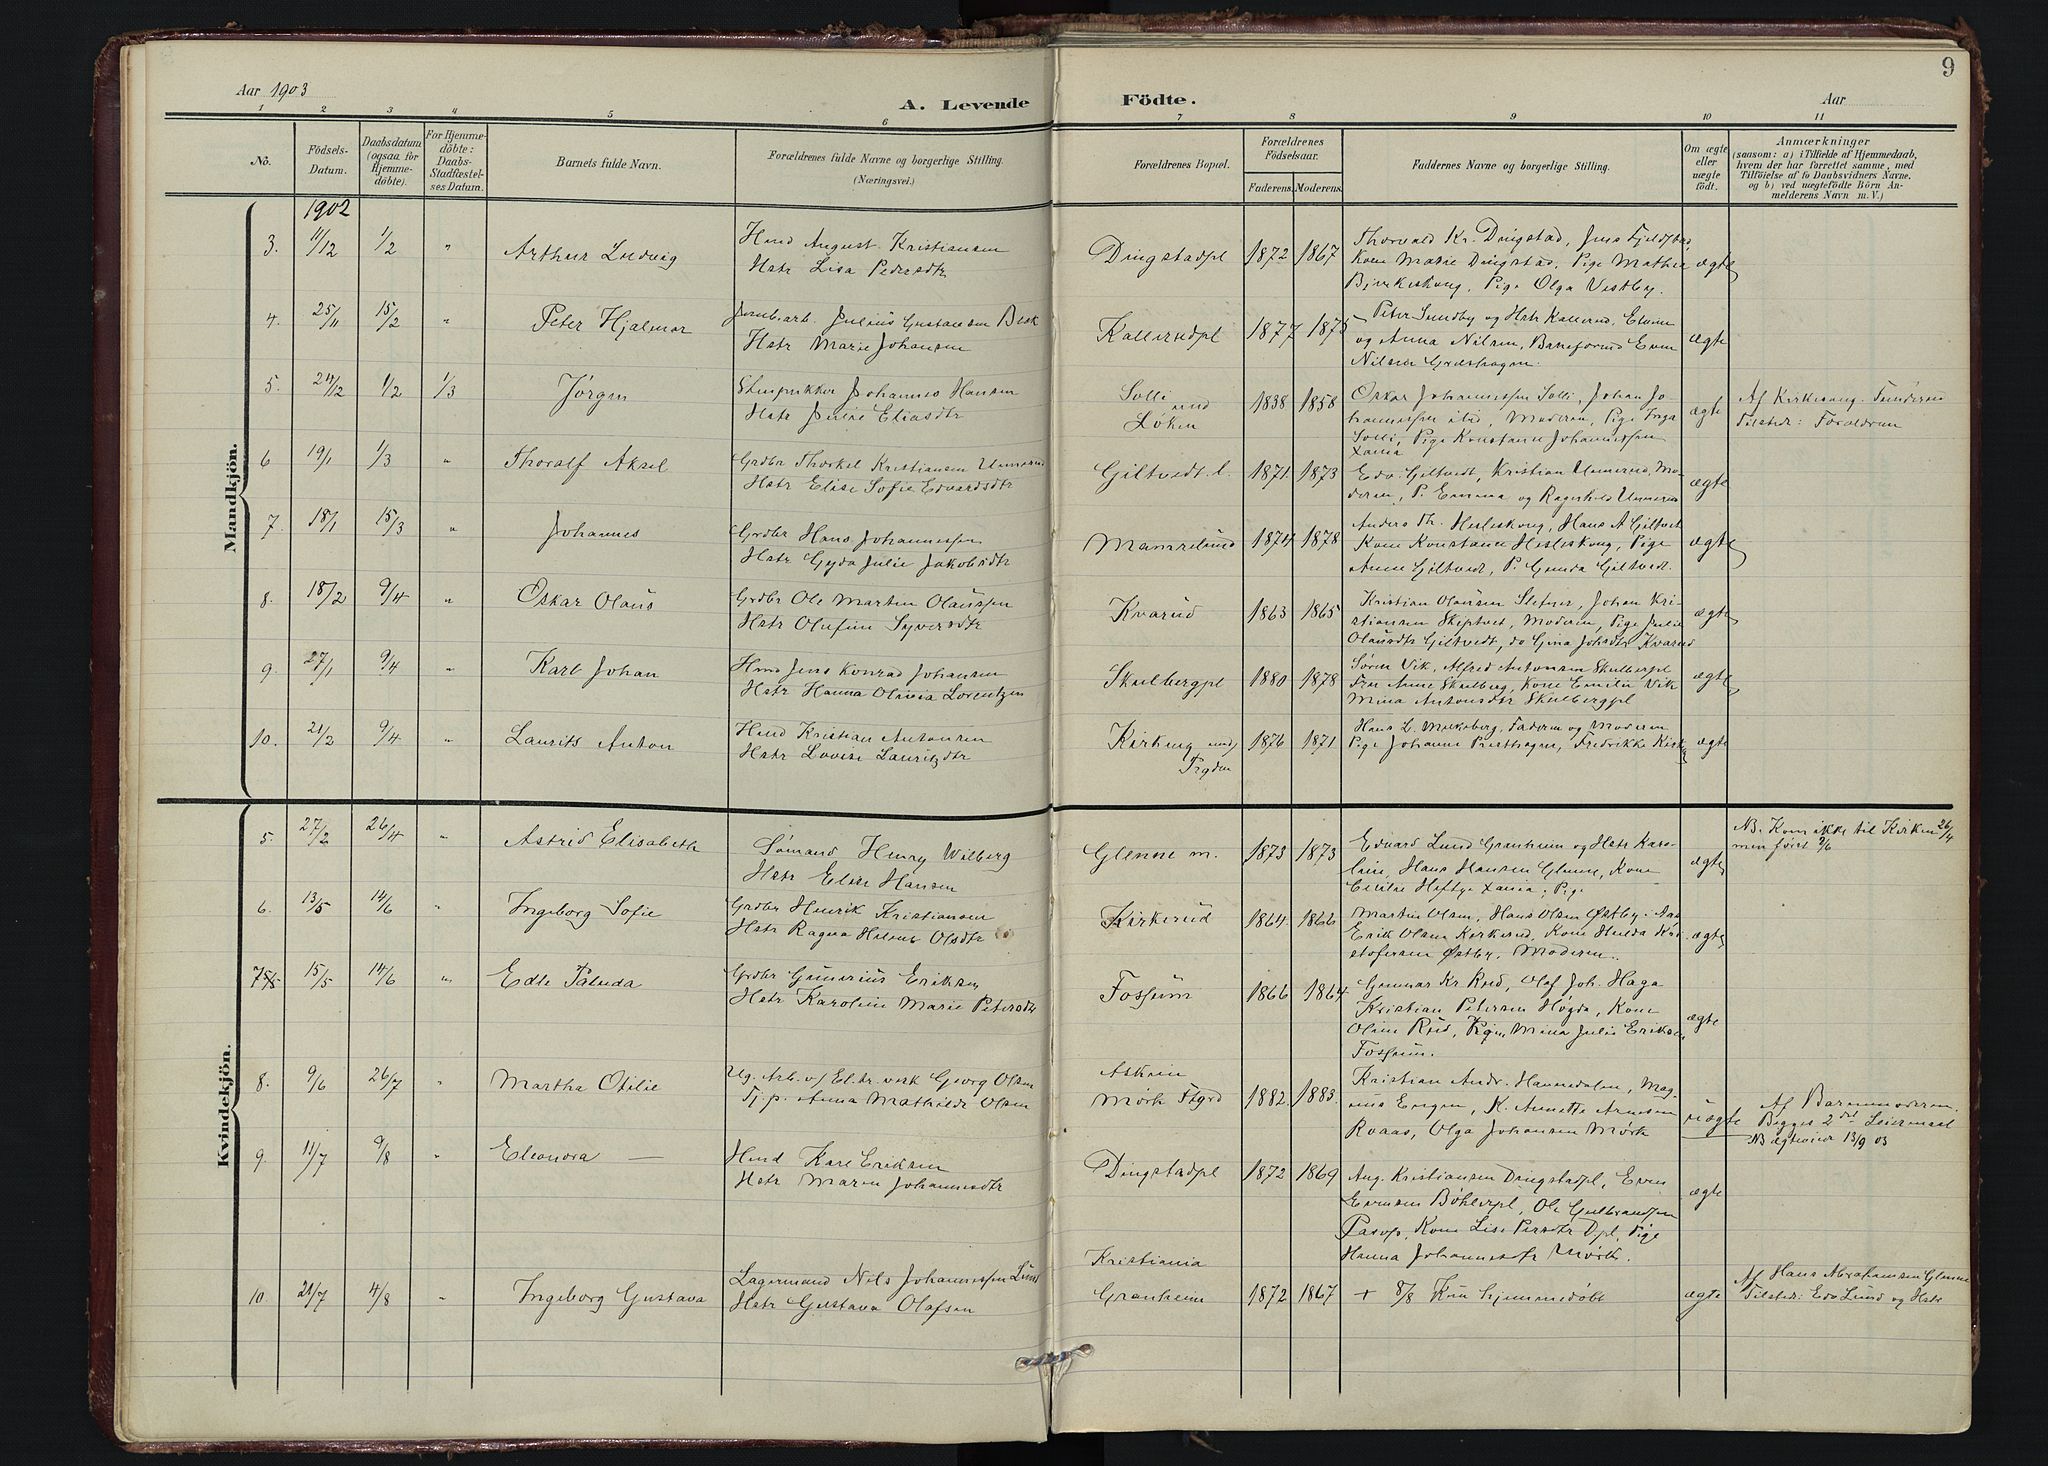 9
Aar 1903
A. Levende Födte.
Aar
1 2 3 4 5 6 7 8 9 10 11
No.
Födsels-Datum.
Daabsdatum (ogsaa for Hjemme-döbte).
For Hjemme-döbte: Daabs-Stadfæstel-ses Datum.
Barnets fulde Navn.
Forældrenes fulde Navne og borgerlige Stilling.
(Næringsvei.)
Forældrenes Bopæl.
Forældrenes Födselsaar.
Faderens. Moderens.
Faddernes Navne og borgerlige Stilling.
Om ægte eller uægte födt.
Anmærkninger
(saasom: a) i Tilfælde af Hjemmedaab,
hvem der har forrettet samme, med
Tilföielse af to Daabsvidners Navne.
og b) ved uægtefödte Börn An-
melderens Navn m. V.)
Mandkjön.
1902
3. 11/12 1/2 " Arthur Ludvig
Hmd August Kristiansen
Hstr Lisa Pedersdtr
Dingstadpl 1872 1867
Thorvald Kr. Dingstad, Jens Fjeldstad
Kone Marie Dingstad, Pige Mathea
Bjerkeskoug, Pige Olga Vestby.
ægte
4. 25/11 15/2 " Peter Hjalmar
Jernb.arb. Julius Gustavsen Bæk
Hstr Marie Johansen
Kallerudpl 1877 1875
Peter Sundby og Hstr Kallerud, Edvin
og Anna Nilsen, Baneformd Even
Nilsen Græshagen.
ægte
5. 24/12 1/2 1/3 Jörgen
Stenpukker Johannes Hansen
Hstr Julie Eliasdtr
Solli
und
Löken
1838 1858
Oskar Johannessen Solli, Johan Jo-
hannessen ibid, Moderen, Pige Inga
Solli, Pige Konstanse Johannessen
Xania
ægte
Af Kirkesang. Tunderne
Tilsted: Forældrene
6 19/1 1/3 " Thoralf Aksel
Grdbr Thorkel Kristiansen Unnerud
Hstr Elise Sofie Edvardsdtr
Giltvedt l. 1871. 1873
Edv. Giltvedt, Kristian Unnerud, Mo-
deren, P. Emma og Ragnhild Unnerud
ægte
7. 18/1 15/3 " Johannes
Grdbr Hans Johannessen
Hstr Gyda Julie Jakobsdtr
Mamrelund 1874 1878
Anders Th. Hesleskoug, Hans A Giltvedt
Kone Konstanse Hesleskoug, Pige
Anne Giltvedt, P. Gunda Giltvedt.
ægte
8. 18/2 9/4 " Oskar Olaüs
Grdbr Ole Martin Olaüssen
Hstr Olufine Syversdtr
Kvarud 1863 1865
Kristian Olaüsen Sletner, Johan Kri-
stiansen Skiptvet, Moderen, Pige Julie
Olausdtr Giltvedt, do Gina Johsdtr Kvarud
ægte
9. 27/1 9/4 " Karl Johan
Hmd Jens Konrad Johansen
Hstr Hanna Olivia Lorentzen
Skulbergpl 1880 1878
Søren Vik, Alfred Antonsen Skulbergpl
Fru Anne Skulberg, Kone Emilie Vik
Mina Antonsdtr Skulbergpl
ægte
10. 21/2 9/4 " Laurits Anton
Hmd Kristian Antonsen
Hstr Lovise Lauritzdtr
Kirkeng und
Prgden
1876 1871
Hans L. Mækeberg, Faderen og Moderen
Pige Johanne Præsthagen, Fredrikke Kirkeng
ægte
Kvindekjön.
5. 27/2 26/4 " Astrid Elisabeth
Sømand Henry Wilberg
Hstr Elise Hansen
Glenne m. 1873 1873
Edvard Lund Granheim og Hstr Karo-
line, Hans Hansen Glenne, Kone
Cecilie Heftye Xania, Pige
ægte
NB. Kom ikke til Kirken 26/4
men först 2/6
6. 13/5 14/6 " Ingeborg Sofie
Grdbr Henrik Kristiansen
Hstr Ragna Helene Olsdtr
Kirkerud 1864 1866
Martin Olsen, Hans Olsen Østby, Aas
Erik Olsen Kirkerud, Kone Hulda Kri-
stofersen Østby, Moderen.
ægte
7 15/5 14/6 " Edle Palüda
Grdbr Gunerius Eriksen
Hstr Karoline Marie Petersdtr
Fossum 1866 1864
Gunnar Kr. Rud, Olaf Joh. Haga
Kristian Petersen Høgda, Kone
Oline Rud, Pigen Mina Julie Eriksen
Fossum.
ægte
8. 9/6 26/7 " Martha Otilie
Ug. Arb. v/ El.tr.verk Georg Olsen
Tj.p. Anna Mathilde Olsen
Askim
Mörk Frgd
1882 1883.
Kristian Andr. Hannedalen, Mag-
nus Engen, K. Annette Arnesen
Roaas, Olga Johansen Mørk
uægte
Af Barnemoderen.
Begges 2det Leiermaal
NB ægteviet 13/9 03
9. 11/7 9/8 " Eleonora —
Hmd Karl Eriksen
Hstr Maren Johannesdtr
Dingstadpl 1872 1869
Aug. Kristiansen Dingstadpl, Even
Evensen Bøhlerpl, Ole Gulbrandsen
Pasop, Kone Lise Persdtr Dpl, Pige
Hanna Johannesdtr Mørk.
ægte
10. 21/7 4/8 " Ingeborg Gustava
Lagermand Nils Johannessen Lund
Hstr Gustava Olafsen
Kristiania
Granheim
1872 1867
+ 8/8 Kun hjemmedøbt
ægte
Af Hans Abrahamsen Glenne
Tilsted: Edv Lund og Hstr